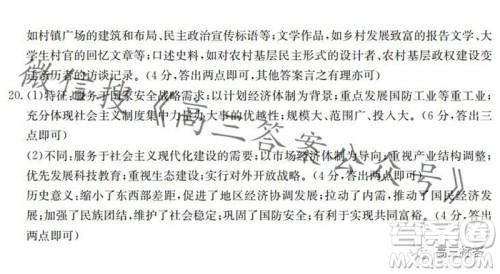 如村镇广场的建筑和布局、民主政治宣传标语等;文学作品,如乡村发展致富的报告文学、大
学生村官的回忆文章等;口述史料,如对农村基层民主形式的设计者、农村基层政权建设变
迁亲历者的访谈记录。(4分,答出两点即可,其他答案言之有理亦可)
20.(1)特征:服务于国家安全战略需求;以计划经济体制为背景;重点发展国防工业等重工业;
充分体现社会主义制度集中力量办大事的优越性;规模大、范围广、投入大。(6分,答出三
点即可)
(2)不同:服务于社会主义现代化建设的需要;以市场经济体制为导向;重视产业结构调整;
优先发展科技教育;重视生态建设;实行对外开放战略。(4分,答出两点即可)
历史意义:缩小了东西部差距,促进了地区经济协调发展;拉动了内需,推动了国民经济发展;
加强了民族团结,维护了社会稳定;巩固了国防安全;有利于实现共同富裕。(4分,答出
两点即可)
微信搜《高三答案公众号》